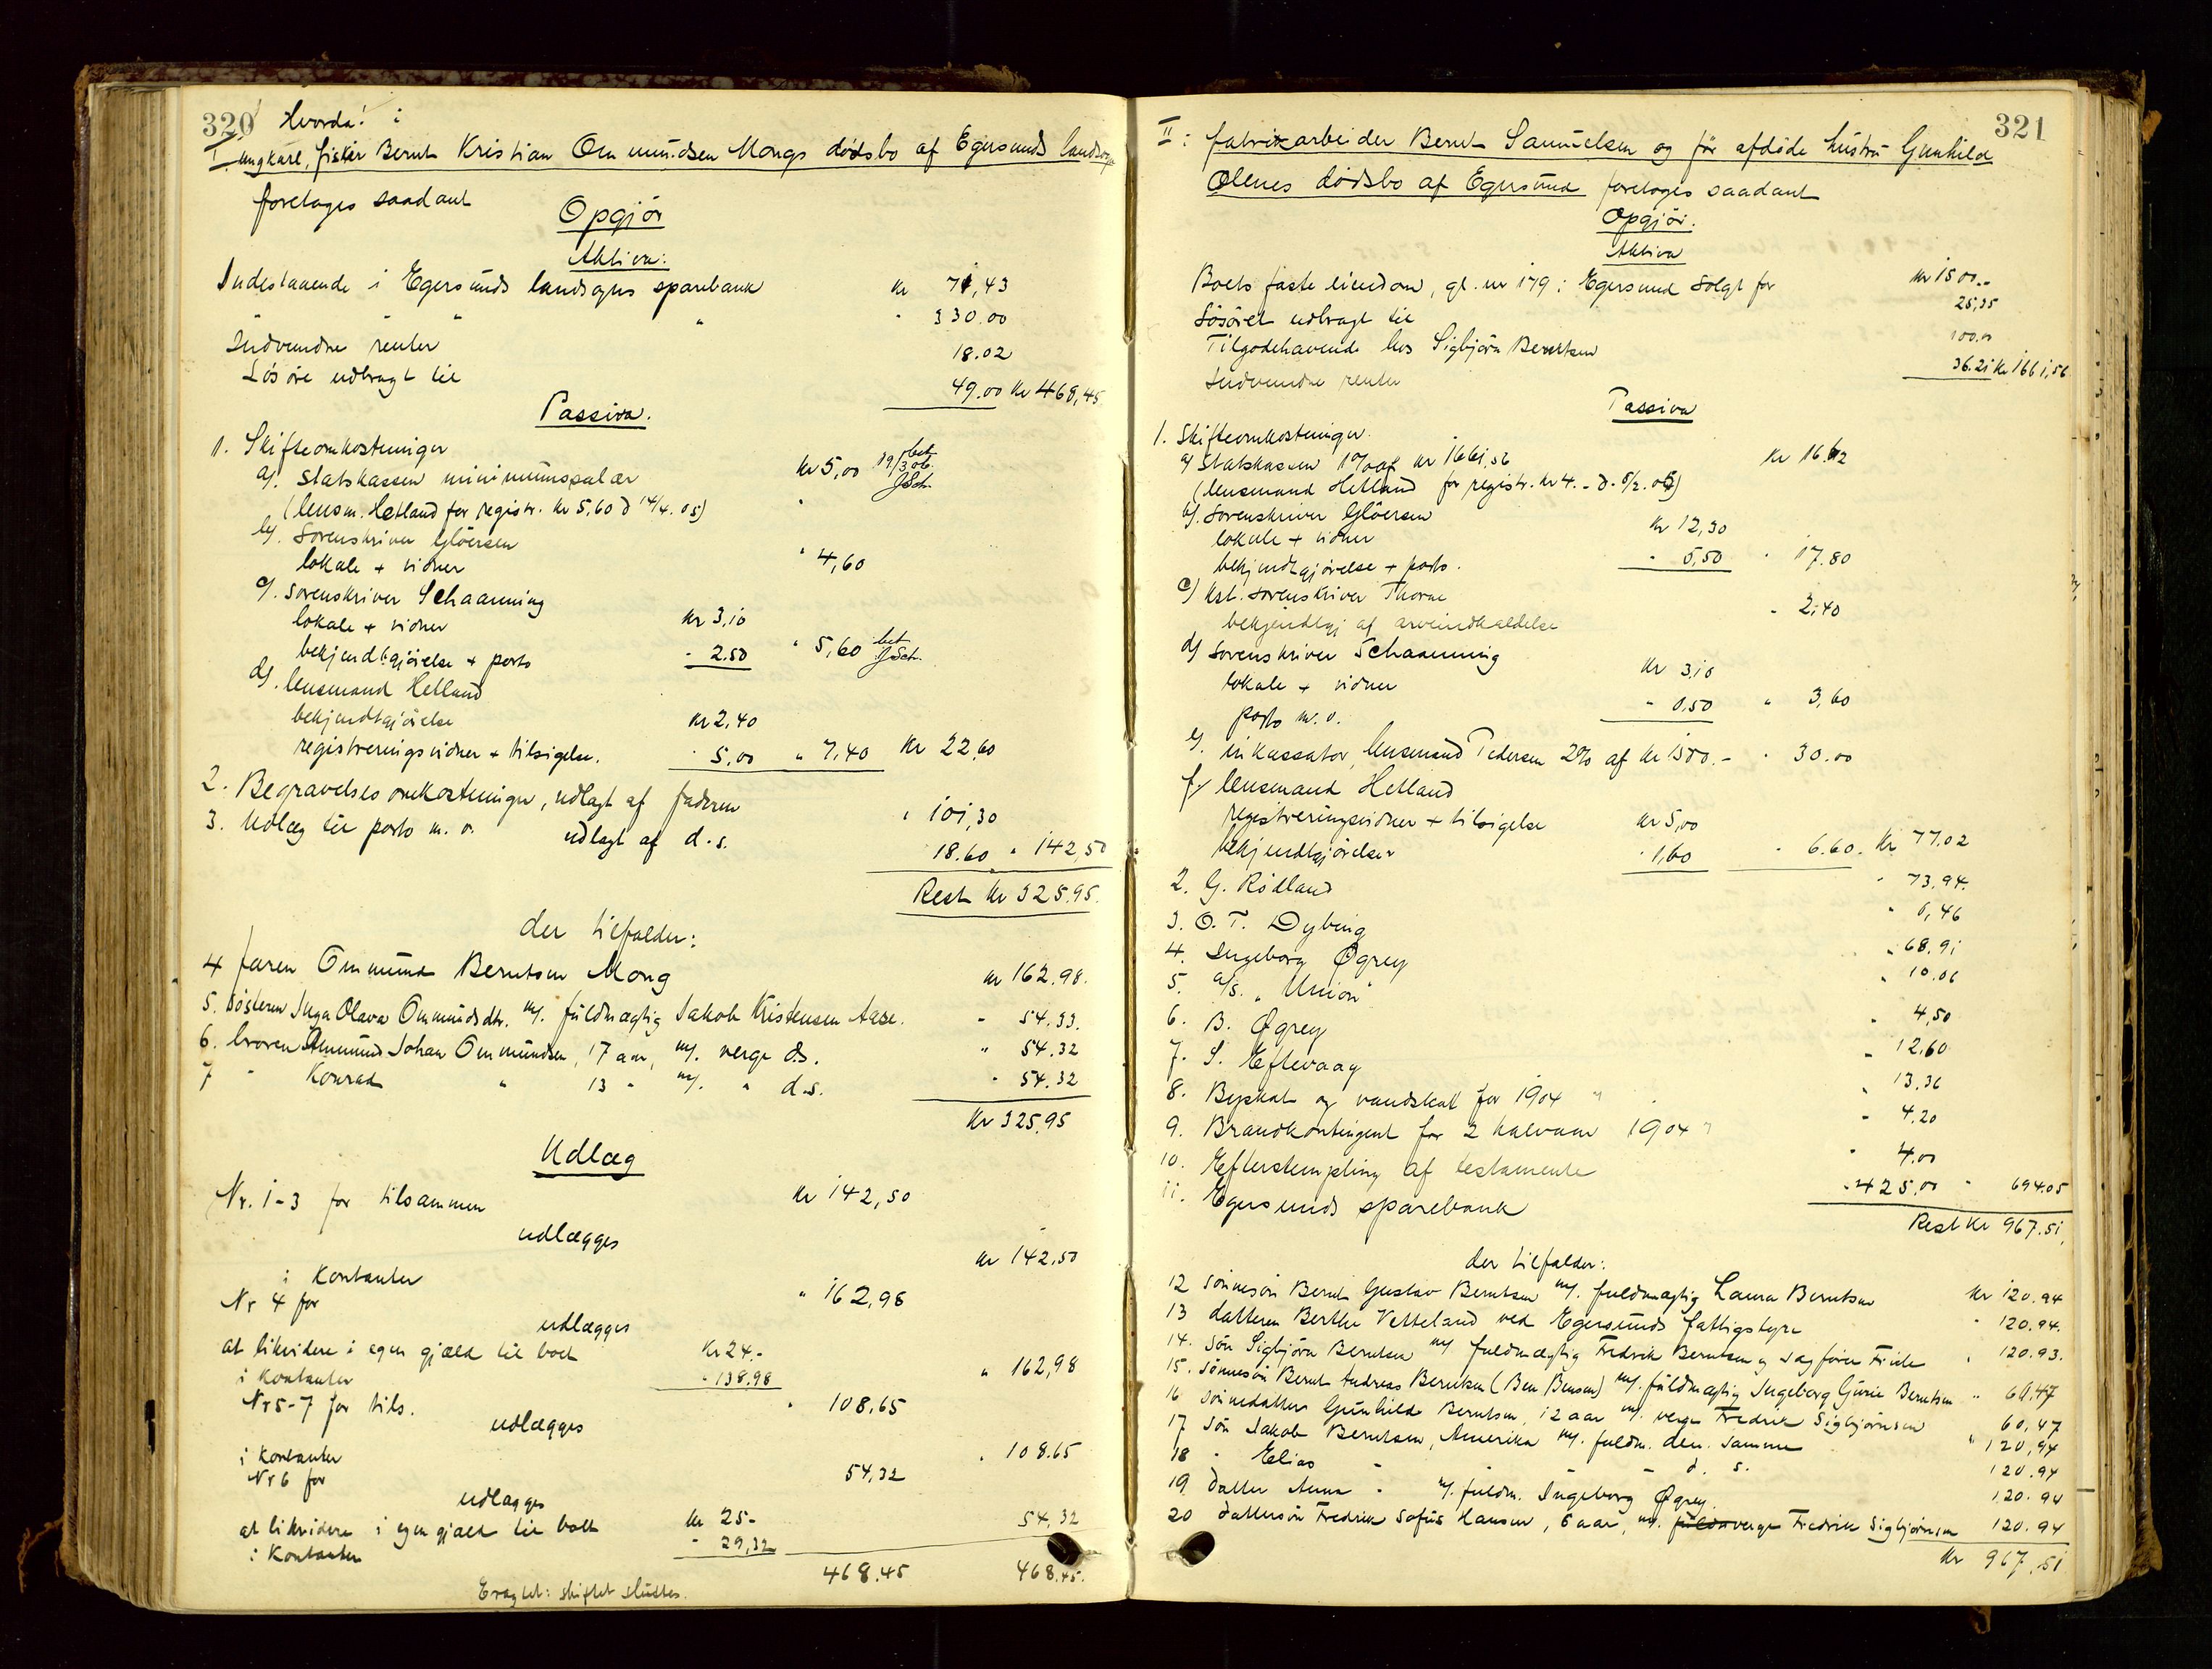 320 Hvorda! i
I ungkarl, fisker Bernt Kristian Ommundsen Mongs dødsbo af Egersunds landsogn
foretoges saadant
Opgjör
Aktiva:
Indestaaende i Egersunds landsogns sparebank Kr 71,43
" " " 330.00
Indvundne renter 18.02
Lösöre udbragt til 49.00 Kr 468,45
Passiva.
1. Skifteomkostninger
a). Statskassen minimumssalær Kr 5,00 bet 19/3 06. JSch.
(lensm. Hetland for registr. Kr 5,60 d 14/4. 05) "
b). Sorenskriver Glöersen
lokale + vidner " 4,60
c). Sorenskriver Schaanning
lokale + vidner Kr 3,10
bekjendtgjörelse + porto - 2.50 " 5,60 bet JSch.
d). lensmand Hetland
bekjendtgjörelse Kr 2,40
registreringsvidner + tilsigelse. - 5,00 " 7,40 Kr 22,60
2. Begravelsesomkostninger, udlagt af faderen " 101,30
3. Udlæg til porto m. v. udlagt af d. s. 18.60 " 142,50
Rest Kr 325.95.
der tilfalder:
4 faren Ommund Berntsen Mong Kr 162.98.
5. söstern Inga Olava Ommundsdtr. m/. fuldmægtig Jakob Kristensen Aase. - 54.33.
6. broren Ommund Johan Ommundsen, 17 aar, m/. verge d.s. " 54.32
7 " Konrad " 13 " m/. " d.s. - 54.32
Kr 325,95
Udlæg
Nr. 1-3 for tilsammen Kr 142,50
udlægges
i kontanter Kr 142,50
Nr 4 for " 162,98
udlægges
at likvidere i egen gjæld til boet Kr 24.-
i kontanter " 138.98 " 162,98
Nr 5-7 for tils. " 108.65
udlægges
i kontanter " 108.65
Nr 6 for 54,32
udlægges
at likvidere i egen gjæld til boet Kr 25-
i kontanter - 29,32 54,32
468.45 468.45.
Eragtet: skiftet sluttes.
321
II: fabrikarbeider Bernt Samuelsen og för afdöde hustru Gunhild
Olenes dödsbo af Egersund foretoges saadant
Opgjör.
Aktiva
Boets faste eiendom, gl. nr 179 i Egersund solgt for Kr 1500.-
Lösöret udbragt til 25,35
Tilgodehavende hos Sigbjörn Berntsen 100.00
Indvundne renter 36.21 Kr 1661,56
Passiva
1. Skifteomkostninger.
a) Statskassen 1% af Kr 1661,56 Kr 16.62
(lensmand Hetland for registr. Kr 4. - d. 8/2. 05)
b). Sorenskriver Glöersen
lokale + vidner Kr 12,30
bekjendtgjörelse + porto. - 5,50 " 17.80
c) Kst. sorenskriver Thorne
bekjendtgj af arveindkaldelse - 2,40
d) Sorenskriver Schaanning
lokale + vidner Kr 3,10
porto m. v. " 0,50 " 3,60
e). inkassator, lensmand Pedersen 2% af Kr 1500.- " 30.00
f) lensmand Hetland
registreringsvidner + tilsigelse Kr 5,00
bekjendtgjörelser " 1,60 " 6.60. Kr 77.02
2. G. Rödland " 73.94.
3. O. T. Dybing " 0,46
4. Ingeborg Øgrey " 68.91
5. A/S. "Union" " 10.06
6. B. Øgrey " 4,50
7. S. Eftevaag " 12,60
8. Byskat og vandskat for 1904 " 13.36
9. Brandkontingent for 2 halvaar 1904 - 4.20
10. Efterstempling af testamente " 4.00
11. Egersunds sparebank - 425.00 " 694.05
Rest Kr 967.51.
der tilfalder:
12 Sönnesön Bernt Gustav Berntsen m/. fuldmægtig Laura Berntsen Kr 120.94
13 datteren Berthe Vetteland ved Egersunds fattigstyre " 120.94.
14. Sön Sigbjörn Berntsen m/ fuldmægtig Fredrik Berntsen og sagförer " 120.93.
15. Sönnesön Bernt Andreas Berntsen (Ben Benson) m/. fuldmægtig Ingeborg Gurie Berntsen " 60.47
16 Sönnedatter Gunhilde Berntsen, 12 aar m/. verge Fredrik Sigbjörnsen 60,47
17 Sön Jakob Berntsen, Amerika m/. fuldm. den samme " 120,94
18 " Elias " - d. s. 120.94
19 Datter Anna " m/. fuldm. Ingeborg Øgrey. 120.94
20 Dattersön Fredrik Sofus Hansen, 6 aar, m/. verge Fredrik Sigbjörnsen 120.94
Kr 967,51